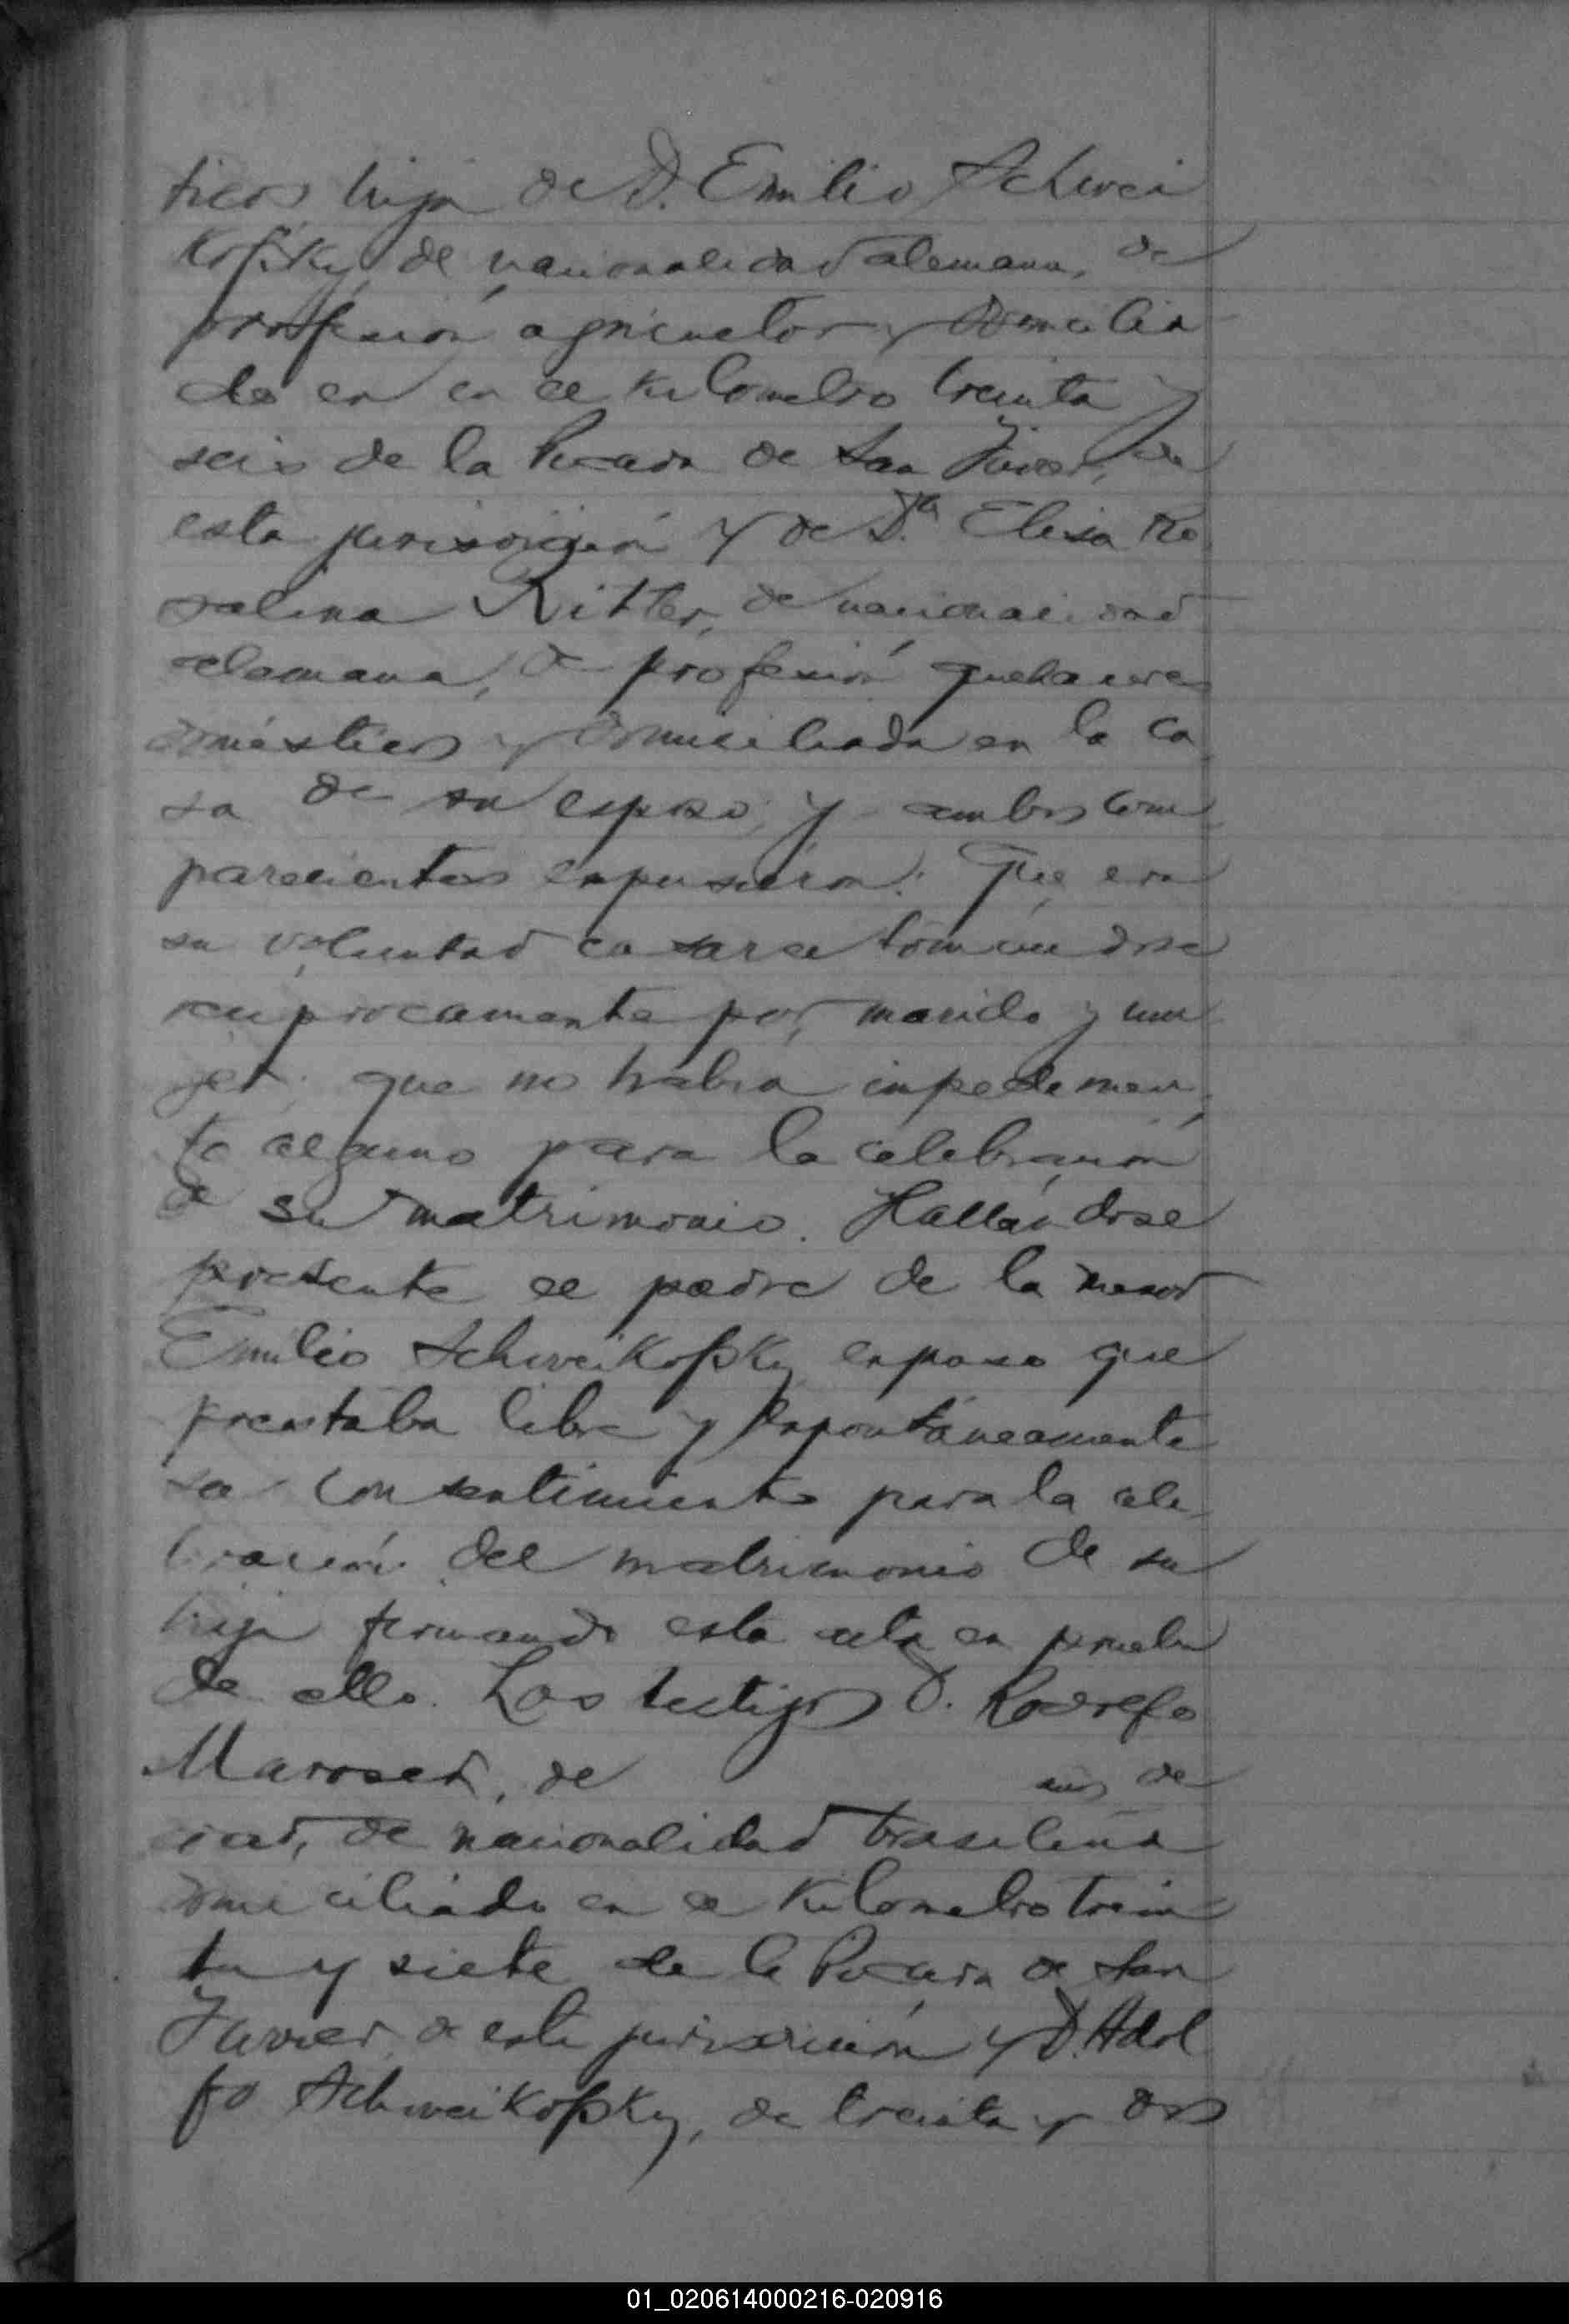 ticos, hija de D. Emilio Schwei
kofsky, de nacionalidad alemana, de
profesión agricultor y domicilia
do en en el kilometro treinta y
seis de la Picada de San Javier, de
esta jurisdicción y de Dª Elisa Ro
salina Ritter, de nacionalidad
alemana, de profesión quehaceres
domésticos y domiciliada en la ca
sa de su esposo, y ambos com
parecientes expusieron: Que era
su voluntad casarse tomándose
recíprocamente por marido y mu
jer, que no habia impedimen
to alguno para la celebración
de su matrimonio. Hallándose
presente el padre de la menor
Emilio Schweikofsky expuso que
prestaba libre y espontáneamente
su consentimiento para la cele
bración del matrimonio de su
hija firmando esta acta en prueba
de ello. Los testigos D. Rodolfo
Maroser, de años de
edad, de nacionalidad brasileña
domiciliado en el Kilometro trein
ta y siete de la Picada de San
Javier, de esta jurisdicción y D. Adol
fo Schweikofsky, de treinta y dos
01_020614000216-020916